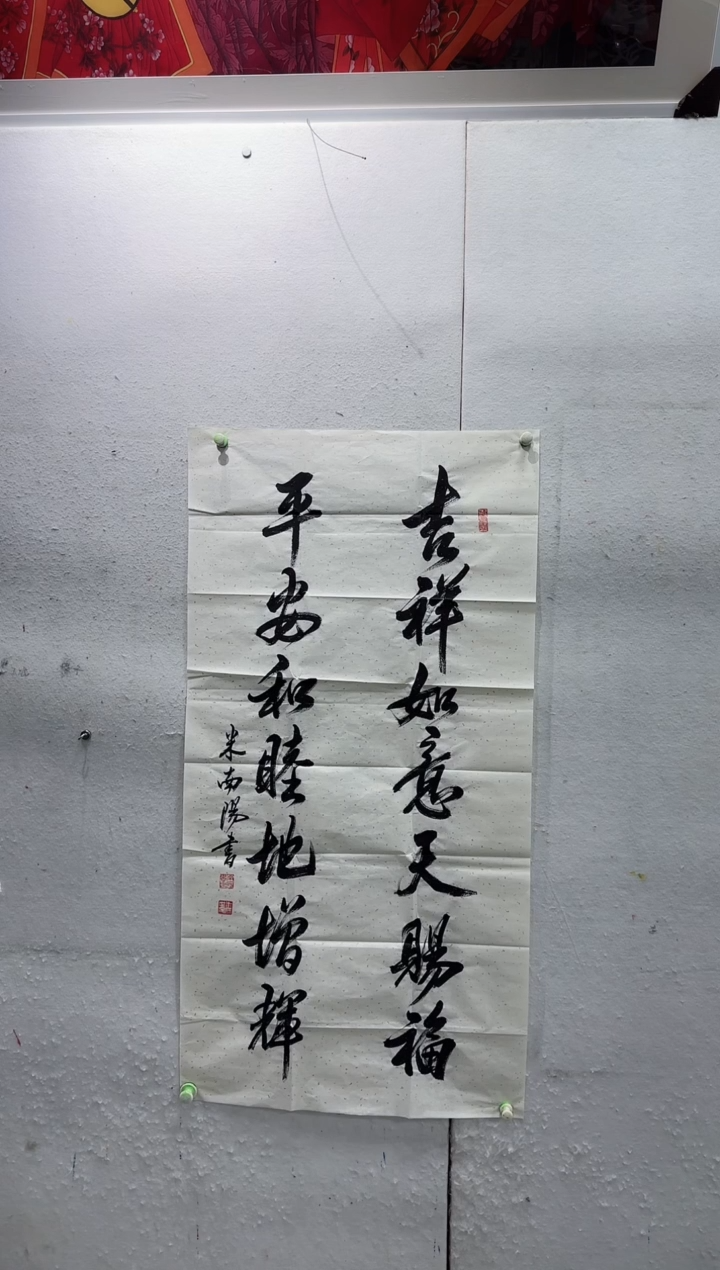 吉祥如意天賜福
平安和睦地增輝
米南陽書